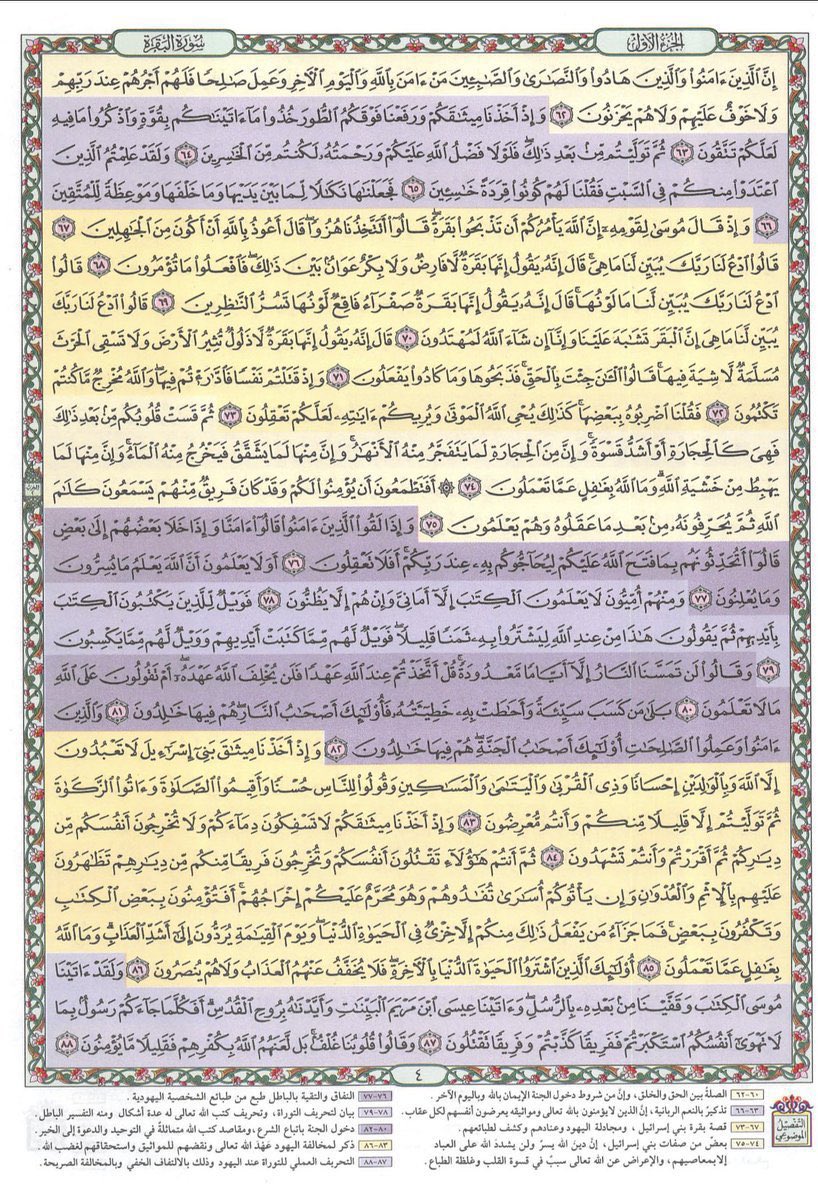 سُورَةُ البَقَرَة
الجُزءُ الأوّل
إِنَّ ٱلَّذِينَ ءَامَنُوا۟ وَٱلَّذِينَ هَادُوا۟ وَٱلنَّصَٰرَىٰ وَٱلصَّٰبِـِٔينَ مَنْ ءَامَنَ بِٱللَّهِ وَٱلْيَوْمِ ٱلْـَٔاخِرِ وَعَمِلَ صَٰلِحًا فَلَهُمْ أَجْرُهُمْ عِندَ رَبِّهِمْ
وَلَا خَوْفٌ عَلَيْهِمْ وَلَا هُمْ يَحْزَنُونَ ٦٢ وَإِذْ أَخَذْنَا مِيثَٰقَكُمْ وَرَفَعْنَا فَوْقَكُمُ ٱلطُّورَ خُذُوا۟ مَآ ءَاتَيْنَٰكُم بِقُوَّةٍ وَٱذْكُرُوا۟ مَا فِيهِ
لَعَلَّكُمْ تَتَّقُونَ ٦٣ ثُمَّ تَوَلَّيْتُم مِّنۢ بَعْدِ ذَٰلِكَ ۖ فَلَوْلَا فَضْلُ ٱللَّهِ عَلَيْكُمْ وَرَحْمَتُهُۥ لَكُنتُم مِّنَ ٱلْخَٰسِرِينَ ٦٤ وَلَقَدْ عَلِمْتُمُ ٱلَّذِينَ
ٱعْتَدَوْا۟ مِنكُمْ فِى ٱلسَّبْتِ فَقُلْنَا لَهُمْ كُونُوا۟ قِرَدَةً خَٰسِـِٔينَ ٦٥ فَجَعَلْنَٰهَا نَكَٰلًا لِّمَا بَيْنَ يَدَيْهَا وَمَا خَلْفَهَا وَمَوْعِظَةً لِّلْمُتَّقِينَ
٦٦ وَإِذْ قَالَ مُوسَىٰ لِقَوْمِهِۦٓ إِنَّ ٱللَّهَ يَأْمُرُكُمْ أَن تَذْبَحُوا۟ بَقَرَةً ۖ قَالُوٓا۟ أَتَتَّخِذُنَا هُزُوًا ۖ قَالَ أَعُوذُ بِٱللَّهِ أَنْ أَكُونَ مِنَ ٱلْجَٰهِلِينَ ٦٧
قَالُوا۟ ٱدْعُ لَنَا رَبَّكَ يُبَيِّن لَّنَا مَا هِىَ ۚ قَالَ إِنَّهُۥ يَقُولُ إِنَّهَا بَقَرَةٌ لَّا فَارِضٌ وَلَا بِكْرٌ عَوَانٌۢ بَيْنَ ذَٰلِكَ ۖ فَٱفْعَلُوا۟ مَا تُؤْمَرُونَ ٦٨ قَالُوا۟
ٱدْعُ لَنَا رَبَّكَ يُبَيِّن لَّنَا مَا لَوْنُهَا ۚ قَالَ إِنَّهُۥ يَقُولُ إِنَّهَا بَقَرَةٌ صَفْرَآءُ فَاقِعٌ لَّوْنُهَا تَسُرُّ ٱلنَّٰظِرِينَ ٦٩ قَالُوا۟ ٱدْعُ لَنَا رَبَّكَ
يُبَيِّن لَّنَا مَا هِىَ إِنَّ ٱلْبَقَرَ تَشَٰبَهَ عَلَيْنَا وَإِنَّآ إِن شَآءَ ٱللَّهُ لَمُهْتَدُونَ ٧٠ قَالَ إِنَّهُۥ يَقُولُ إِنَّهَا بَقَرَةٌ لَّا ذَلُولٌ تُثِيرُ ٱلْأَرْضَ وَلَا تَسْقِى ٱلْحَرْثَ
مُسَلَّمَةٌ لَّا شِيَةَ فِيهَا ۚ قَالُوا۟ ٱلْـَٰٔنَ جِئْتَ بِٱلْحَقِّ ۚ فَذَبَحُوهَا وَمَا كَادُوا۟ يَفْعَلُونَ ٧١ وَإِذْ قَتَلْتُمْ نَفْسًا فَٱدَّٰرَْٰٔتُمْ فِيهَا ۖ وَٱللَّهُ مُخْرِجٌ مَّا كُنتُمْ
تَكْتُمُونَ ٧٢ فَقُلْنَا ٱضْرِبُوهُ بِبَعْضِهَا ۚ كَذَٰلِكَ يُحْىِ ٱللَّهُ ٱلْمَوْتَىٰ وَيُرِيكُمْ ءَايَٰتِهِۦ لَعَلَّكُمْ تَعْقِلُونَ ٧٣ ثُمَّ قَسَتْ قُلُوبُكُم مِّنۢ بَعْدِ ذَٰلِكَ
فَهِىَ كَٱلْحِجَارَةِ أَوْ أَشَدُّ قَسْوَةً ۚ وَإِنَّ مِنَ ٱلْحِجَارَةِ لَمَا يَتَفَجَّرُ مِنْهُ ٱلْأَنْهَٰرُ ۚ وَإِنَّ مِنْهَا لَمَا يَشَّقَّقُ فَيَخْرُجُ مِنْهُ ٱلْمَآءُ ۚ وَإِنَّ مِنْهَا لَمَا
يَهْبِطُ مِنْ خَشْيَةِ ٱللَّهِ ۗ وَمَا ٱللَّهُ بِغَٰفِلٍ عَمَّا تَعْمَلُونَ ٧٤ ۞ أَفَتَطْمَعُونَ أَن يُؤْمِنُوا۟ لَكُمْ وَقَدْ كَانَ فَرِيقٌ مِّنْهُمْ يَسْمَعُونَ كَلَٰمَ
ٱللَّهِ ثُمَّ يُحَرِّفُونَهُۥ مِنۢ بَعْدِ مَا عَقَلُوهُ وَهُمْ يَعْلَمُونَ ٧٥ وَإِذَا لَقُوا۟ ٱلَّذِينَ ءَامَنُوا۟ قَالُوٓا۟ ءَامَنَّا وَإِذَا خَلَا بَعْضُهُمْ إِلَىٰ بَعْضٍ
قَالُوٓا۟ أَتُحَدِّثُونَهُم بِمَا فَتَحَ ٱللَّهُ عَلَيْكُمْ لِيُحَآجُّوكُم بِهِۦ عِندَ رَبِّكُمْ ۚ أَفَلَا تَعْقِلُونَ ٧٦ أَوَلَا يَعْلَمُونَ أَنَّ ٱللَّهَ يَعْلَمُ مَا يُسِرُّونَ
وَمَا يُعْلِنُونَ ٧٧ وَمِنْهُمْ أُمِّيُّونَ لَا يَعْلَمُونَ ٱلْكِتَٰبَ إِلَّآ أَمَانِىَّ وَإِنْ هُمْ إِلَّا يَظُنُّونَ ٧٨ فَوَيْلٌ لِّلَّذِينَ يَكْتُبُونَ ٱلْكِتَٰبَ
بِأَيْدِيهِمْ ثُمَّ يَقُولُونَ هَٰذَا مِنْ عِندِ ٱللَّهِ لِيَشْتَرُوا۟ بِهِۦ ثَمَنًا قَلِيلًا ۖ فَوَيْلٌ لَّهُم مِّمَّا كَتَبَتْ أَيْدِيهِمْ وَوَيْلٌ لَّهُم مِّمَّا يَكْسِبُونَ
٧٩ وَقَالُوا۟ لَن تَمَسَّنَا ٱلنَّارُ إِلَّآ أَيَّامًا مَّعْدُودَةً ۚ قُلْ أَتَّخَذْتُمْ عِندَ ٱللَّهِ عَهْدًا فَلَن يُخْلِفَ ٱللَّهُ عَهْدَهُۥٓ ۖ أَمْ تَقُولُونَ عَلَى ٱللَّهِ
مَا لَا تَعْلَمُونَ ٨٠ بَلَىٰ مَن كَسَبَ سَيِّئَةً وَأَحَٰطَتْ بِهِۦ خَطِيٓـَٔتُهُۥ فَأُو۟لَٰٓئِكَ أَصْحَٰبُ ٱلنَّارِ ۖ هُمْ فِيهَا خَٰلِدُونَ ٨١ وَٱلَّذِينَ
ءَامَنُوا۟ وَعَمِلُوا۟ ٱلصَّٰلِحَٰتِ أُو۟لَٰٓئِكَ أَصْحَٰبُ ٱلْجَنَّةِ ۖ هُمْ فِيهَا خَٰلِدُونَ ٨٢ وَإِذْ أَخَذْنَا مِيثَٰقَ بَنِىٓ إِسْرَٰٓءِيلَ لَا تَعْبُدُونَ
إِلَّا ٱللَّهَ وَبِٱلْوَٰلِدَيْنِ إِحْسَانًا وَذِى ٱلْقُرْبَىٰ وَٱلْيَتَٰمَىٰ وَٱلْمَسَٰكِينِ وَقُولُوا۟ لِلنَّاسِ حُسْنًا وَأَقِيمُوا۟ ٱلصَّلَوٰةَ وَءَاتُوا۟ ٱلزَّكَوٰةَ
ثُمَّ تَوَلَّيْتُمْ إِلَّا قَلِيلًا مِّنكُمْ وَأَنتُم مُّعْرِضُونَ ٨٣ وَإِذْ أَخَذْنَا مِيثَٰقَكُمْ لَا تَسْفِكُونَ دِمَآءَكُمْ وَلَا تُخْرِجُونَ أَنفُسَكُم مِّن
دِيَٰرِكُمْ ثُمَّ أَقْرَرْتُمْ وَأَنتُمْ تَشْهَدُونَ ٨٤ ثُمَّ أَنتُمْ هَٰٓؤُلَآءِ تَقْتُلُونَ أَنفُسَكُمْ وَتُخْرِجُونَ فَرِيقًا مِّنكُم مِّن دِيَٰرِهِمْ تَظَٰهَرُونَ
عَلَيْهِم بِٱلْإِثْمِ وَٱلْعُدْوَٰنِ وَإِن يَأْتُوكُمْ أُسَٰرَىٰ تُفَٰدُوهُمْ وَهُوَ مُحَرَّمٌ عَلَيْكُمْ إِخْرَاجُهُمْ ۚ أَفَتُؤْمِنُونَ بِبَعْضِ ٱلْكِتَٰبِ
وَتَكْفُرُونَ بِبَعْضٍ ۚ فَمَا جَزَآءُ مَن يَفْعَلُ ذَٰلِكَ مِنكُمْ إِلَّا خِزْىٌ فِى ٱلْحَيَوٰةِ ٱلدُّنْيَا ۖ وَيَوْمَ ٱلْقِيَٰمَةِ يُرَدُّونَ إِلَىٰٓ أَشَدِّ ٱلْعَذَابِ ۗ وَمَا ٱللَّهُ
بِغَٰفِلٍ عَمَّا تَعْمَلُونَ ٨٥ أُو۟لَٰٓئِكَ ٱلَّذِينَ ٱشْتَرَوُا۟ ٱلْحَيَوٰةَ ٱلدُّنْيَا بِٱلْـَٔاخِرَةِ ۖ فَلَا يُخَفَّفُ عَنْهُمُ ٱلْعَذَابُ وَلَا هُمْ يُنصَرُونَ ٨٦ وَلَقَدْ ءَاتَيْنَا
مُوسَى ٱلْكِتَٰبَ وَقَفَّيْنَا مِنۢ بَعْدِهِۦ بِٱلرُّسُلِ ۖ وَءَاتَيْنَا عِيسَى ٱبْنَ مَرْيَمَ ٱلْبَيِّنَٰتِ وَأَيَّدْنَٰهُ بِرُوحِ ٱلْقُدُسِ ۗ أَفَكُلَّمَا جَآءَكُمْ رَسُولٌۢ بِمَا
لَا تَهْوَىٰٓ أَنفُسُكُمُ ٱسْتَكْبَرْتُمْ فَفَرِيقًا كَذَّبْتُمْ وَفَرِيقًا تَقْتُلُونَ ٨٧ وَقَالُوا۟ قُلُوبُنَا غُلْفٌۢ ۚ بَل لَّعَنَهُمُ ٱللَّهُ بِكُفْرِهِمْ فَقَلِيلًا مَّا يُؤْمِنُونَ ٨٨
٤
التَّفْصِيلُ الموضُوعِي
٦٠-٦٢ الصلةُ بين الحق والخلق، وإنّ من شروط دخول الجنة الإيمان بالله وباليوم الآخر .
٦٣-٦٦ تذكيرٌ بالنعم الربانية، إنَّ الذين لا يؤمنون بالله تعالى ومواثيقه يعرضون أنفسهم لكل عقاب .
٦٧-٧٣ قصة بقرة بني إسرائيل ، ومجادلة اليهود وعنادهم وكشف لطبائعهم .
٧٤-٧٥ بعضٌ من صفات بني إسرائيل، إنَّ دينَ الله يسرٌ ولن يشددَ الله على العباد
إلا بمعاصيهم، والإعراض عن الله تعالى سببٌ في قسوة القلب وغلظة الطباع.
٧٦-٧٧ النفاق والتقية بالباطل طبع من طبائع الشخصية اليهودية .
٧٨-٧٩ بيان لتحريف التوراة، وتحريف كتب الله تعالى له عدة أشكال ومنه التفسير الباطل.
٨٠-٨٢ دخول الجنة باتباع الشرع، ومقاصد كتب الله متماثلةٌ في التوحيد والدعوة إلى الخير .
٨٣-٨٦ ذكر لمخالفة اليهود عَهْدَ الله تعالى ونقضهم للمواثيق واستحقاقهم لغضب الله .
٨٧-٨٨ التحريف العملي للتوراة عند اليهود وذلك بالالتفاف الخفي وبالمخالفة الصريحة.